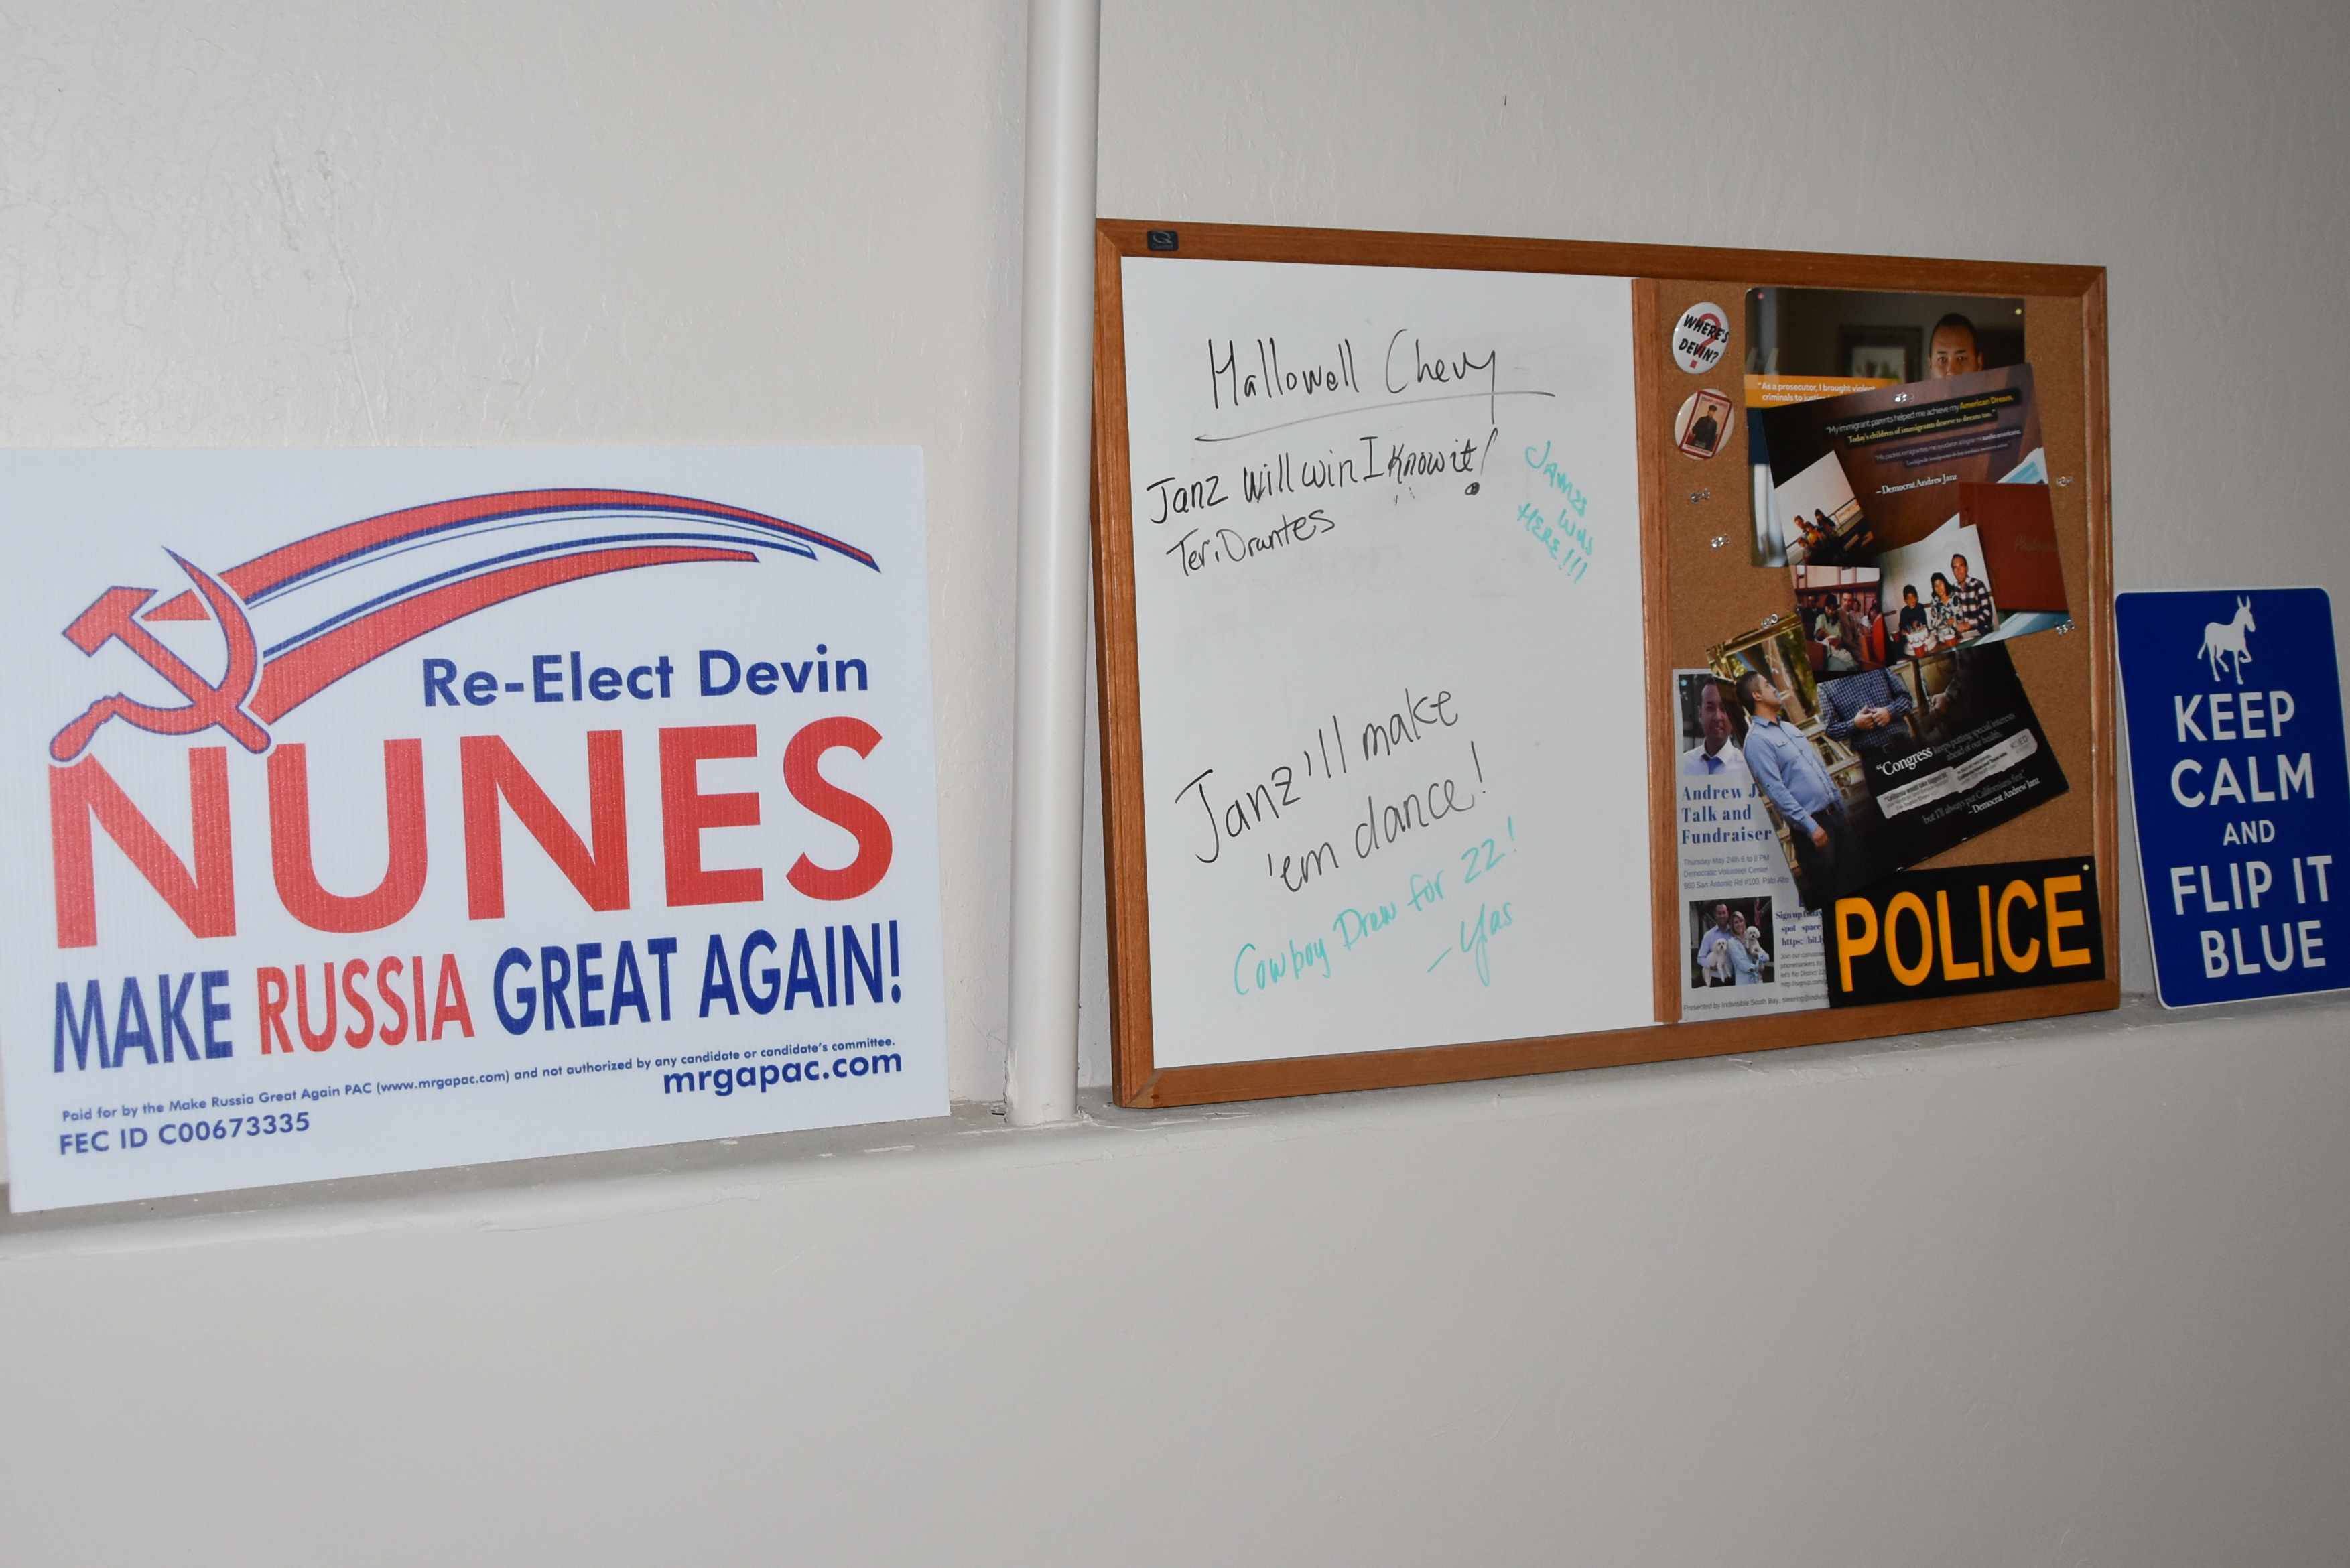 Re-Elect Devin
NUNES
MAKE RUSSIA GREAT AGAIN!
Paid for by the Make Russia Great Again PAC (www.mrgapac.com) and not authorized by any candidate or candidate's committee.
mrgapac.com
FEC ID C00673335
Hallowell Chevy
Janz will win I know it!
Teri Orantes
JAMES
WAS
HERE!!!
Janz'll make
'em dance!
Cowboy Drew for 22!
- Yas
WHERE'S
DEVIN?
"As a prosecutor, I brought violent
criminals to justice
"My immigrant parents helped me achieve my American Dream.
Today's children of immigrants deserve to dream too."
– Democrat Andrew Janz
"Congress keeps putting special interests
ahead of our health,
but I'll always put Californians first."
– Democrat Andrew Janz
Andrew J
Talk and
Fundraiser
Thursday May 24th 6 to 8 PM
Democratic Volunteer Center
960 San Antonio Rd #100, Palo Alto
Sign up today
spot space
https: bit.l
Presented by Indivisible South Bay,
POLICE
KEEP
CALM
AND
FLIP IT
BLUE